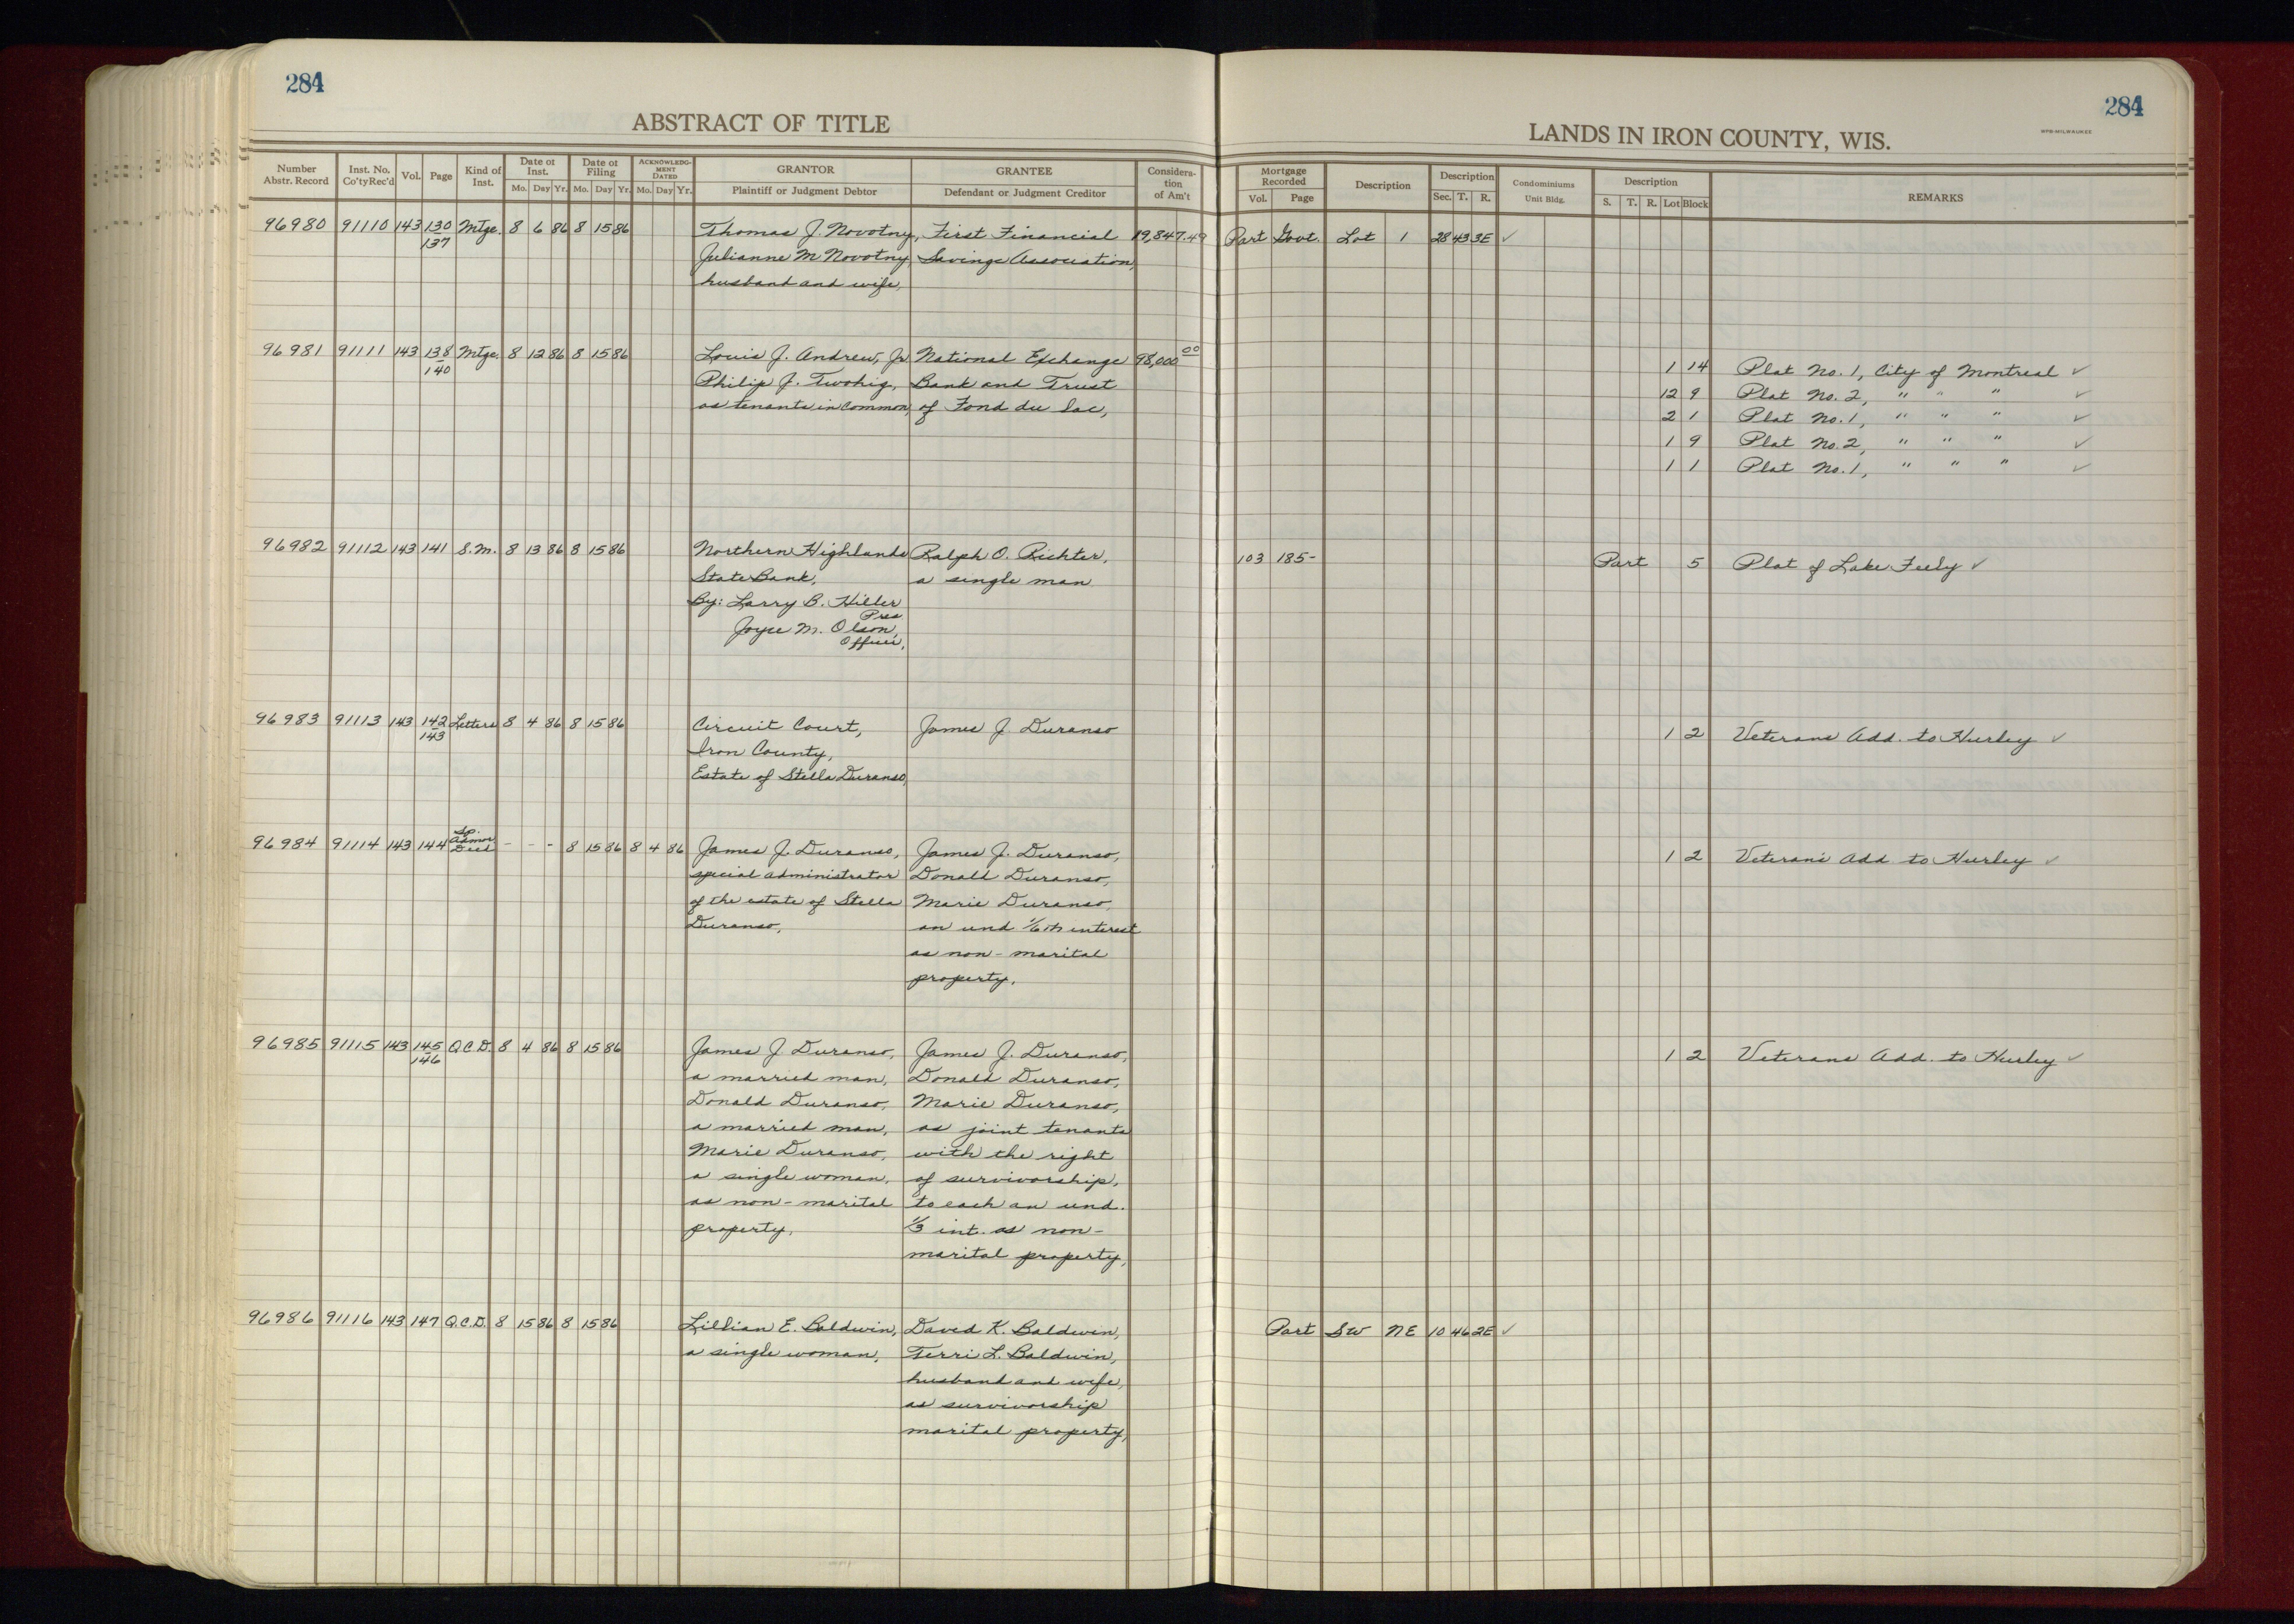 284
284
ABSTRACT OF TITLE
LANDS IN IRON COUNTY, WIS.
Number Abstr. Record Inst. No. Co'ty Rec'd Vol. Page Kind of Inst. Date of Inst. Mo. Day Yr. Date of Filing Mo. Day Yr. ACKNOWLEDGMENT DATED Mo. Day Yr. GRANTOR Plaintiff or Judgment Debtor GRANTEE Defendant or Judgment Creditor Consideration of Am't Mortgage Recorded Vol. Page Description Description Sec. T. R. Condominiums Unit Bldg. Description S. T. R. Lot Block REMARKS
96980 91110 143 130 137 Mtge. 8 6 86 8 15 86 Thomas J. Novotny, First Financial 19,847.49 Part Govt. Lot 1 28 43 3E ✓
Julianne M Novotny, Savings Association,
husband and wife,
96981 91111 143 138 140 Mtge. 8 12 86 8 15 86 Louis J. Andrew, Jr. National Exchange 98,000 00 1 14 Plat No. 1, City of Montreal ✓
Philip J. Twohig, Bank and Trust 12 9 Plat No. 2, " " " ✓
as tenants in common, of Fond du Lac, 2 1 Plat No. 1, " " " ✓
1 9 Plat No. 2, " " " ✓
1 1 Plat No. 1, " " " ✓
96982 91112 143 141 S.M. 8 13 86 8 15 86 Northern Highlands Ralph O. Richter, 103 185- Part 5 Plat of Lake Feely ✓
State Bank, a single man
By: Larry B. Hiller
Pres
Joyce M. Olson,
Officer,
96983 91113 143 142 143 Letters 8 4 86 8 15 86 Circuit Court, James J. Duranso 1 2 Veterans Add. to Hurley ✓
Iron County,
Estate of Stella Duranso,
96984 91114 143 144 Sp. Admrs Deed - - - 8 15 86 8 4 86 James J. Duranso, James J. Duranso, 1 2 Veteran's Add. to Hurley ✓
special administrator Donald Duranso,
of the estate of Stella Marie Duranso,
Duranso, an und 1/6th interest
as non-marital
property,
96985 91115 143 145 146 Q.C.D. 8 4 86 8 15 86 James J Duranso, James J. Duranso, 1 2 Veterans Add. to Hurley ✓
a married man, Donald Duranso,
Donald Duranso, Marie Duranso,
a married man, as joint tenants
Marie Duranso, with the right
a single woman, of survivorship,
as non-marital to each an und.
property, 1/3 int. as non-
marital property,
96986 91116 143 147 Q.C.D. 8 15 86 8 15 86 Lillian E. Baldwin, David K. Baldwin, Part SW NE 10 46 2E ✓
a single woman, Terri L. Baldwin,
husband and wife,
as survivorship
marital property,